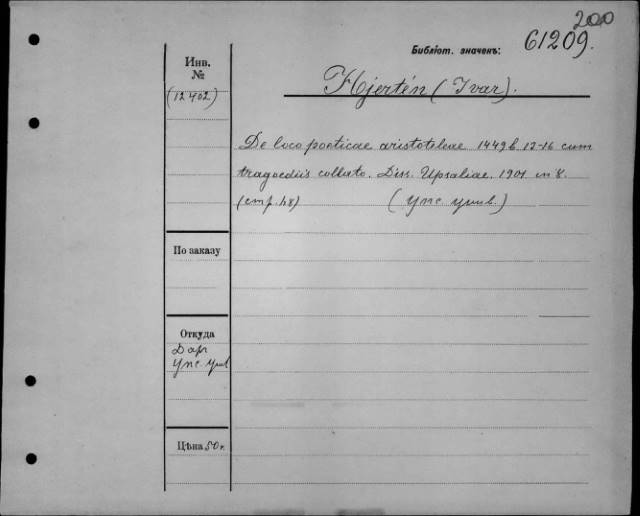 200
Библіот. значекъ: 61209.
Инв.
№
(12402)
Hjertén (Ivar).
De loco poeticae aristoteleae 1449b 12-16 cum
tragoediis collato. Diss. Upsaliae. 1901. in 8.
(стр. 48) (Упс. унив.)
По заказу
Откуда
Дар
Упс. унив
Цѣна 50 к.